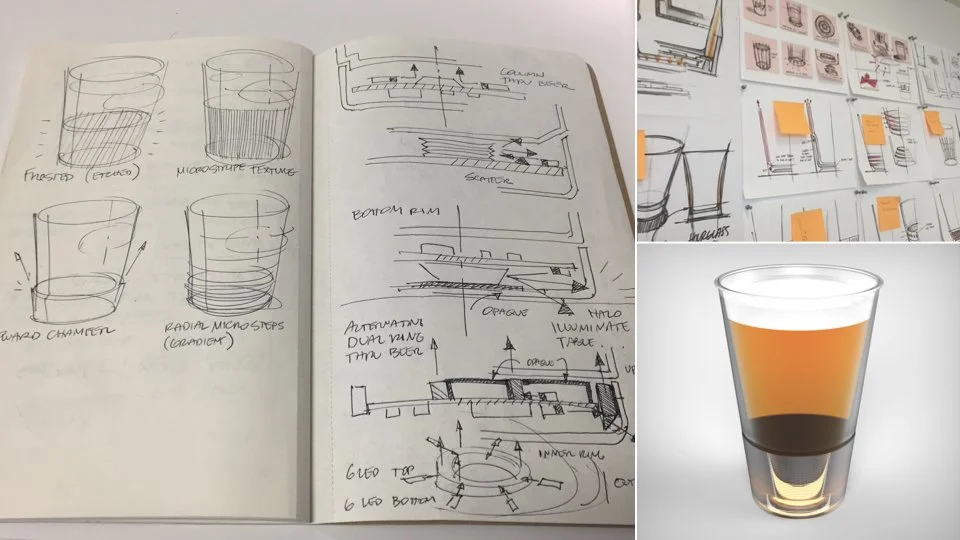 FROSTED (ETCHED)
MICROSTRIPE TEXTURE
CHAMFER
RADIAL MICROSTEPS
(GRADIENT)
COLUMN
THRU BEER
SCATTER
BOTTOM RIM
OPAQUE
HALO
ILLUMINATE
TABLE...
ALTERNATING
DUAL RING
THRU BEER
OPAQUE
INNER RING
6 LED TOP
6 LED BOTTOM
HOURGLASS